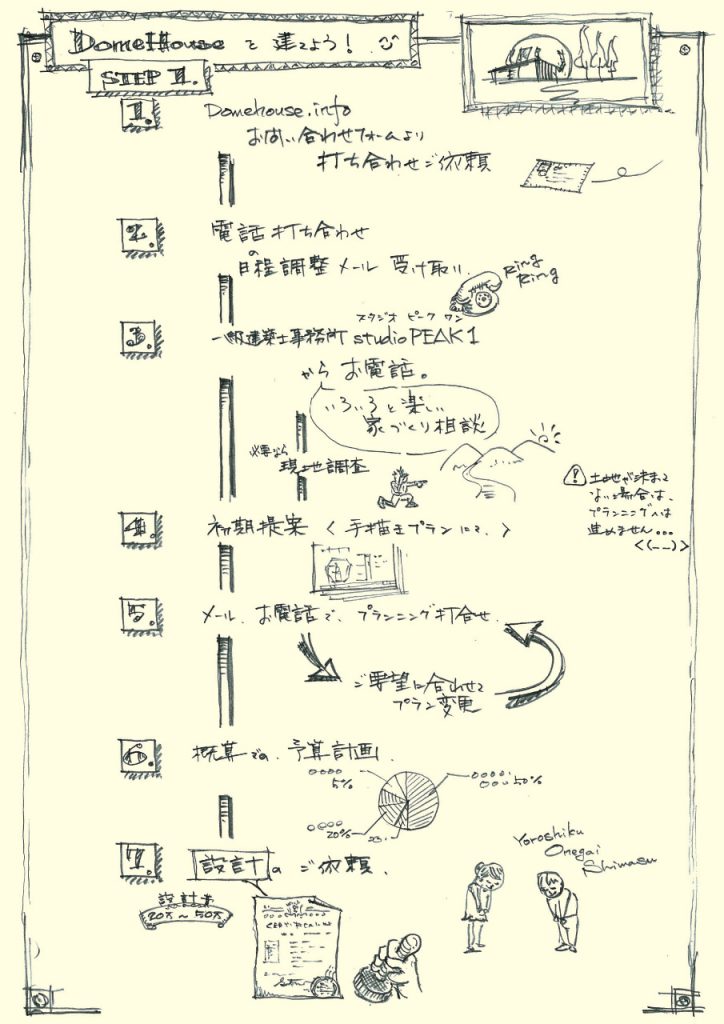 DomeHouse を 建てよう!
STEP 1.
1.
Domehouse.info
お問い合わせフォームより
打ち合わせご依頼
2.
電話打ち合わせ
の
日程調整メール 受け取り
Ring
Ring
3.
スタジオ ピーク ワン
一級建築士事務所 studio PEAK 1
から お電話。
いろいろと楽しい
家づくり相談
必要なら
現地調査
土地が決まって
ない場合は、
プランニングは
進めません...
<(__)>
4.
初期提案 <手描きプランにて、>
5.
メール、お電話で、プランニング打合せ.
ご要望に合わせて
プラン変更
6.
概算での、予算計画.
5%
50%
20%
7.
設計のご依頼、
設計費
20万〜50万
Yoroshiku
Onegai
Shimasu